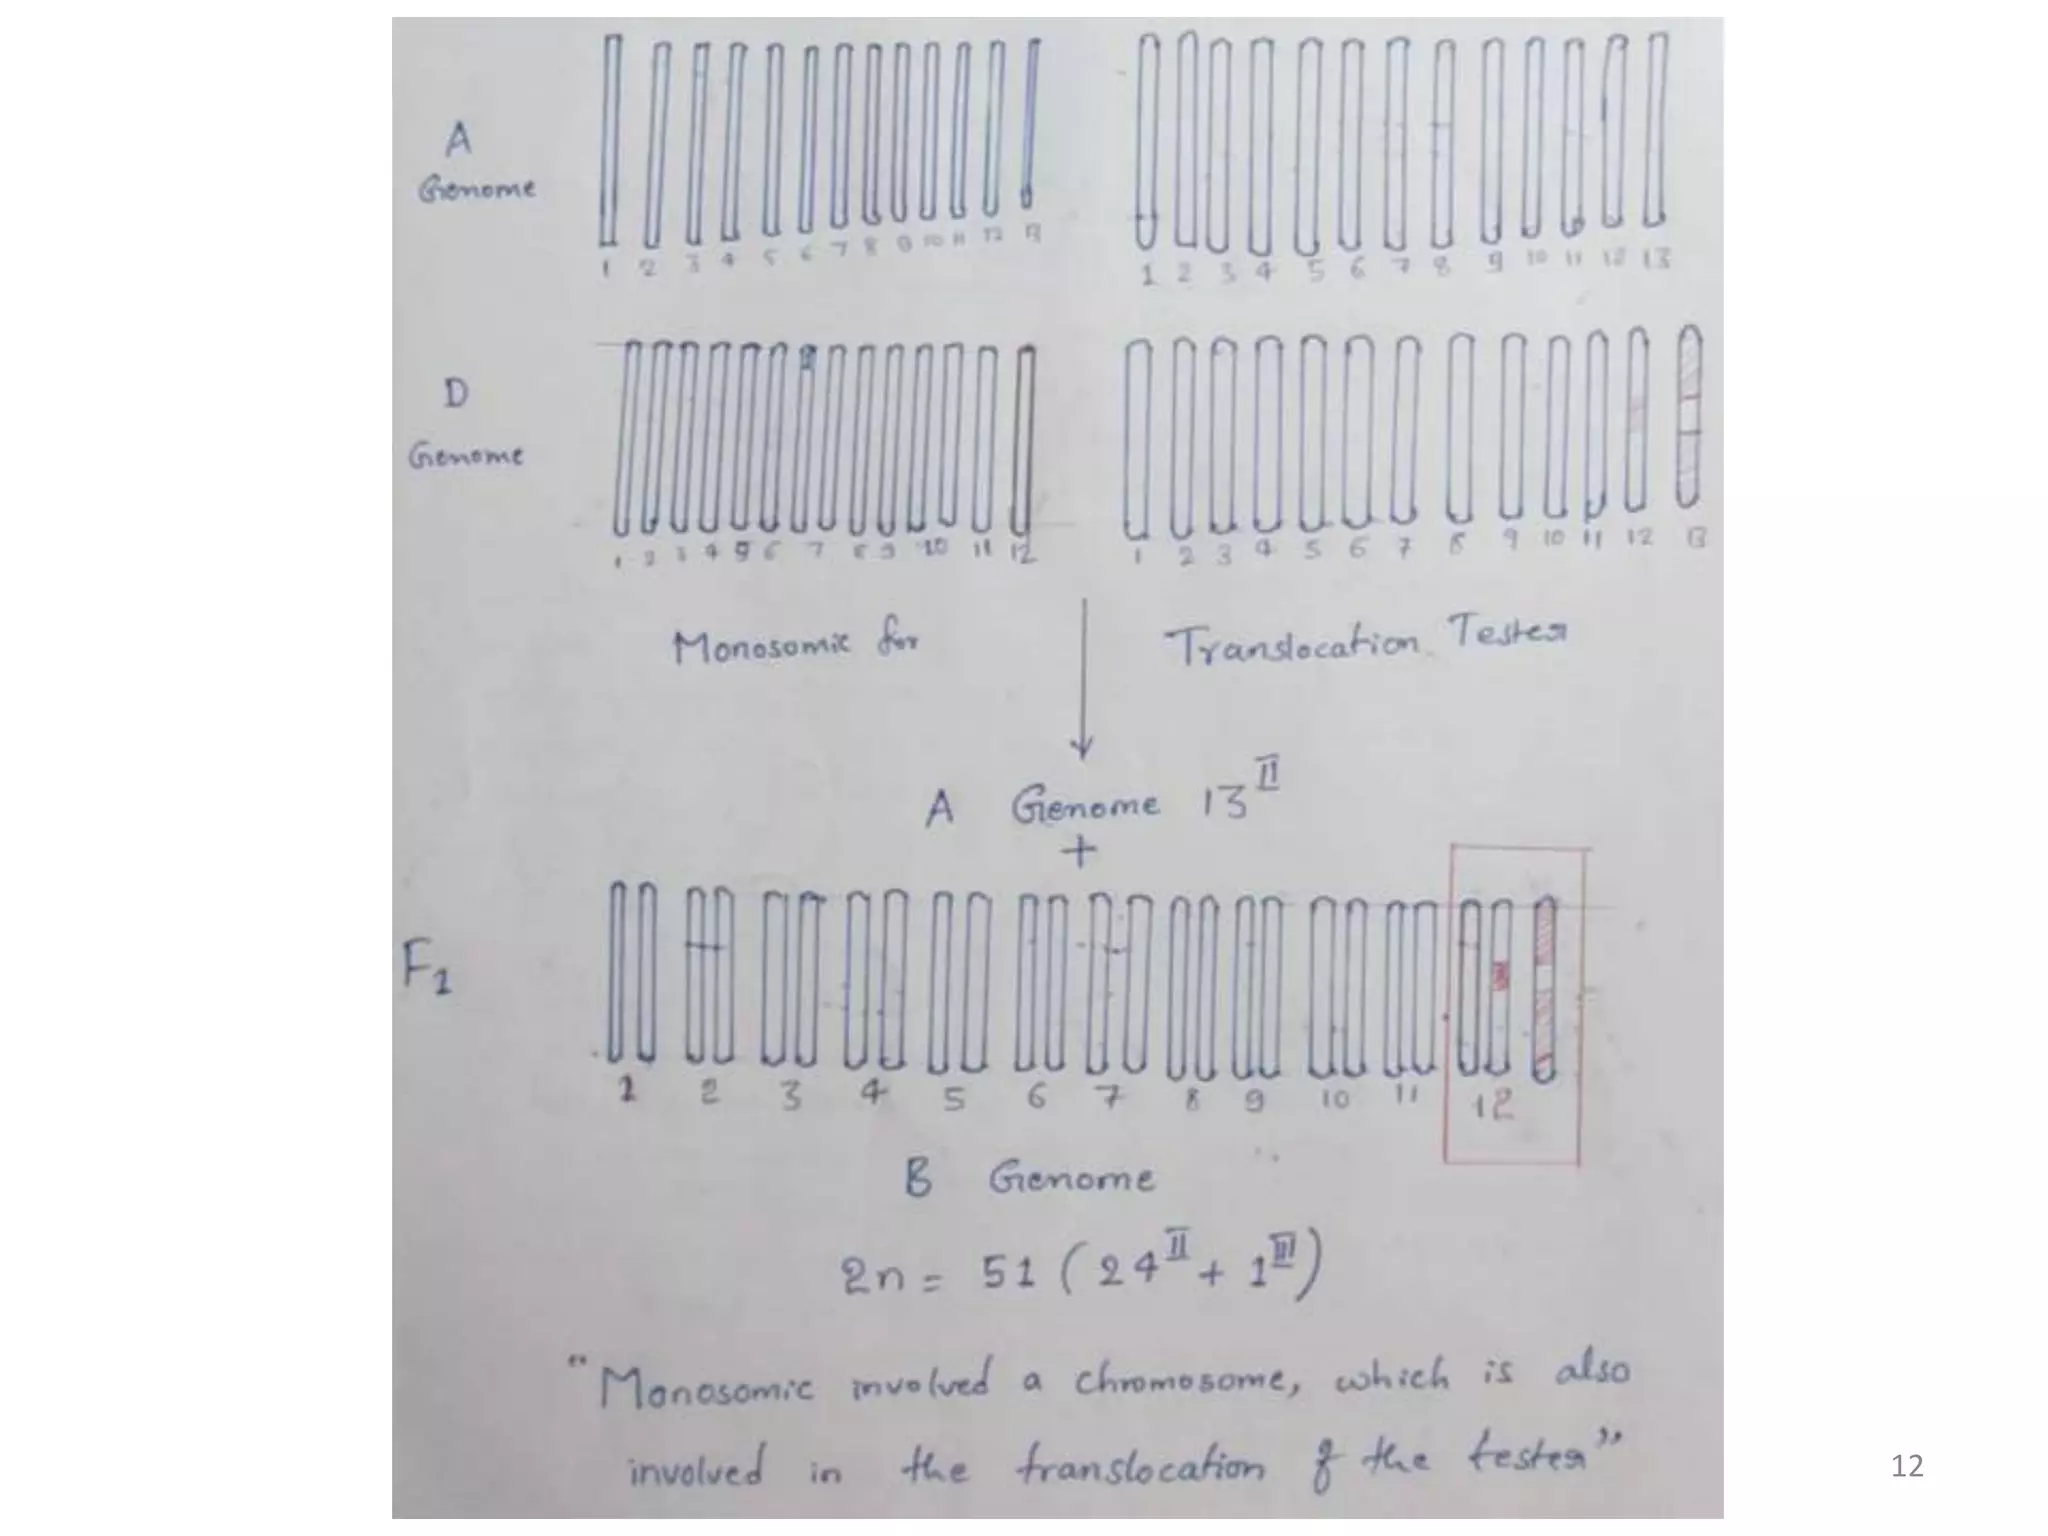 A
Genome
1 2 3 4 5 6 7 8 9 10 11 12 13
1 2 3 4 5 6 7 8 9 10 11 12 13
D
Genome
1 2 3 4 5 6 7 8 9 10 11 12
1 2 3 4 5 6 7 8 9 10 11 12 13
Monosomic for
Translocation Tester
A Genome 13^II
+
F1
1 2 3 4 5 6 7 8 9 10 11 12
B Genome
2n = 51 (24^II + 1^III)
"Monosomic involved a chromosome, which is also
involved in the translocation of the tester"
12